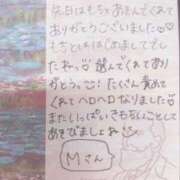 本日はもちゃあそんでくれて
ありがとうございました♡♡
もちといちばじめましてでし
たねっ♡選んでくれてあり
がとう。たくさん責めて
くれてヘロヘロなりました♡
またいっぱいきもちいことして
あそびましょね♡
Mさん